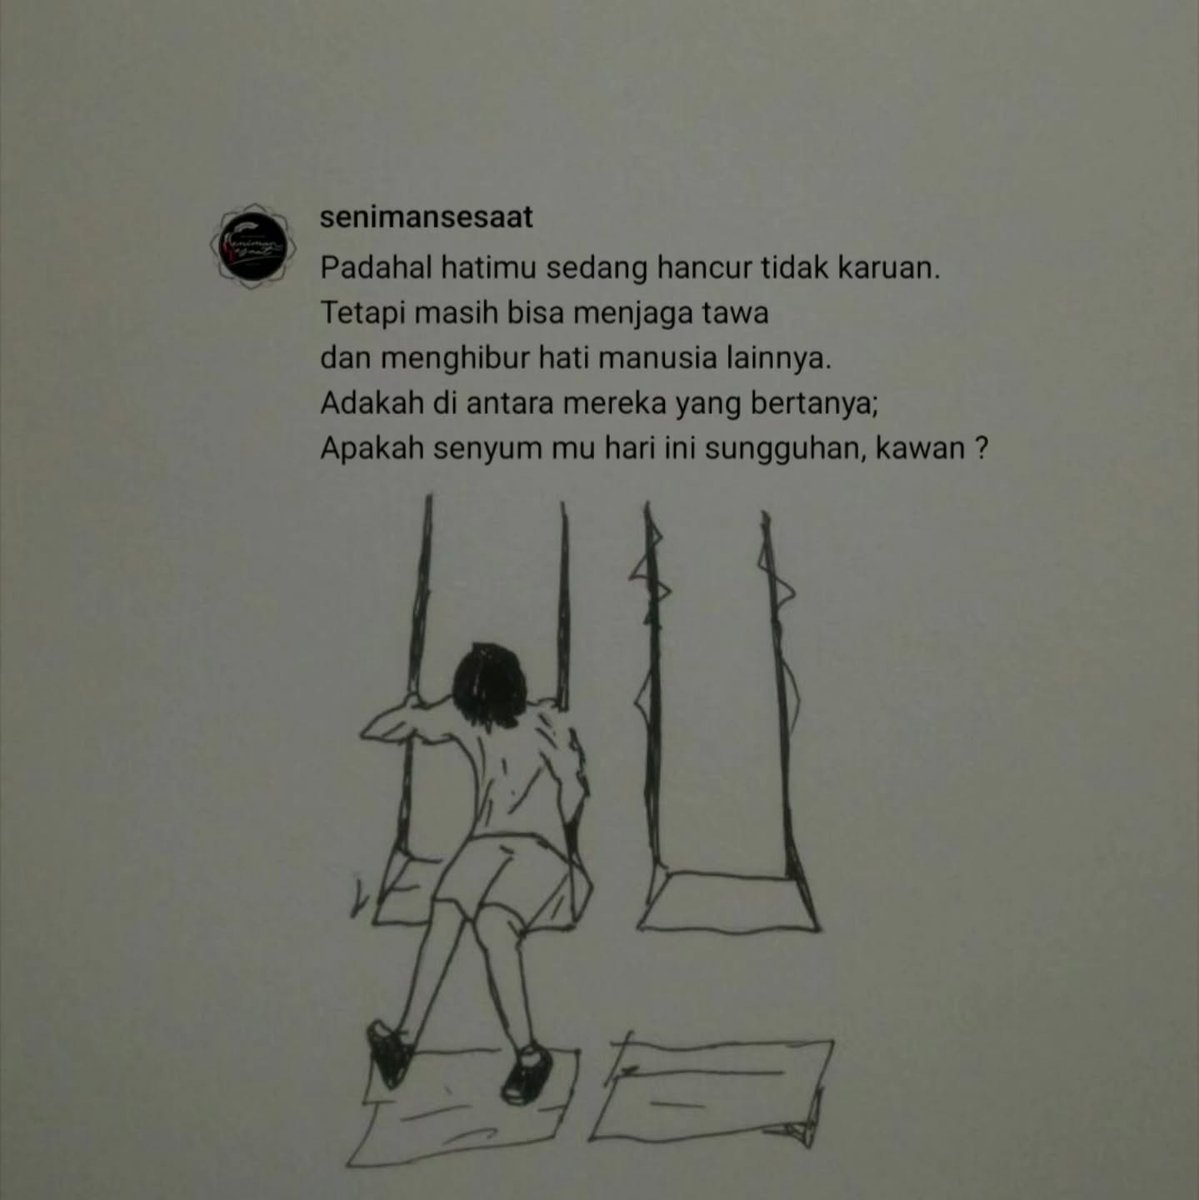 senimansesaat
Padahal hatimu sedang hancur tidak karuan.
Tetapi masih bisa menjaga tawa
dan menghibur hati manusia lainnya.
Adakah di antara mereka yang bertanya;
Apakah senyum mu hari ini sungguhan, kawan ?